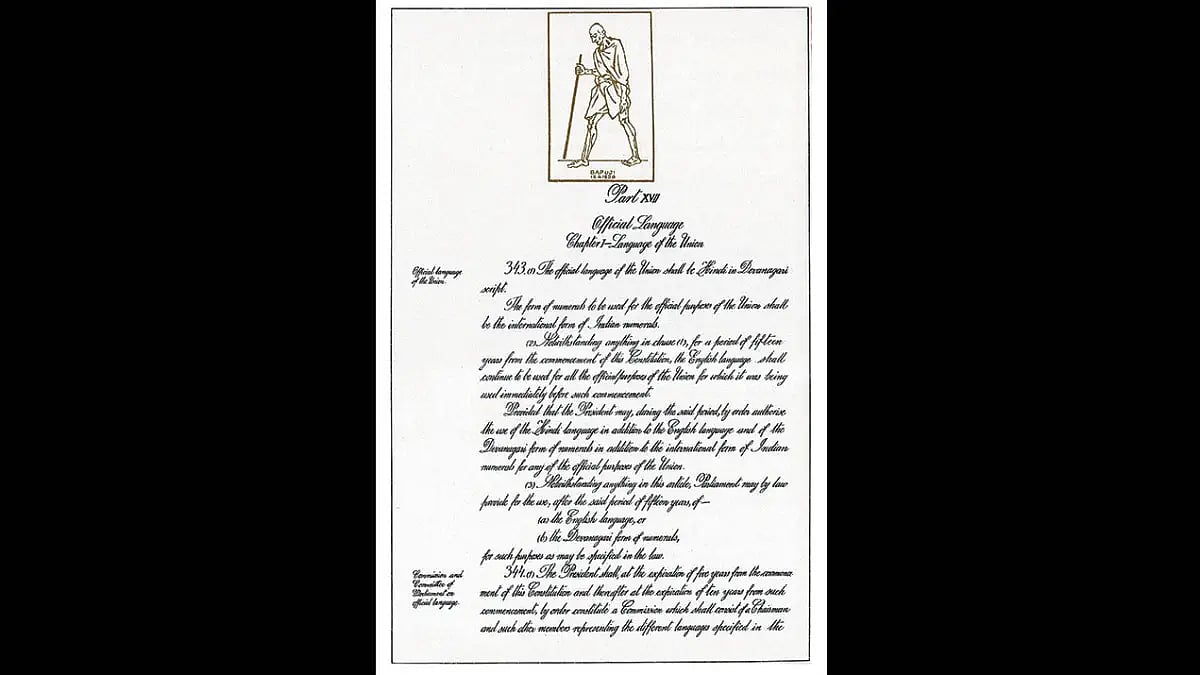 BAPUJI
12.4.1930
Part XVII
Official Language
Chapter I—Language of the Union
Official language
of the Union.
343. (1) The official language of the Union shall be Hindi in Devanagari
script.
The form of numerals to be used for the official purposes of the Union shall
be the international form of Indian numerals.
(2) Notwithstanding anything in clause (1), for a period of fifteen
years from the commencement of this Constitution, the English language shall
continue to be used for all the official purposes of the Union for which it was being
used immediately before such commencement.
Provided that the President may, during the said period, by order authorise
the use of the Hindi language in addition to the English language and of the
Devanagari form of numerals in addition to the international form of Indian
numerals for any of the official purposes of the Union.
(3) Notwithstanding anything in this article, Parliament may by law
provide for the use, after the said period of fifteen years, of—
(a) the English language, or
(b) the Devanagari form of numerals,
for such purposes as may be specified in the law.
Commission and
Committee of
Parliament on
official language.
344. (1) The President shall, at the expiration of five years from the commence
ment of this Constitution and thereafter at the expiration of ten years from such
commencement, by order constitute a Commission which shall consist of a Chairman
and such other members representing the different languages specified in the